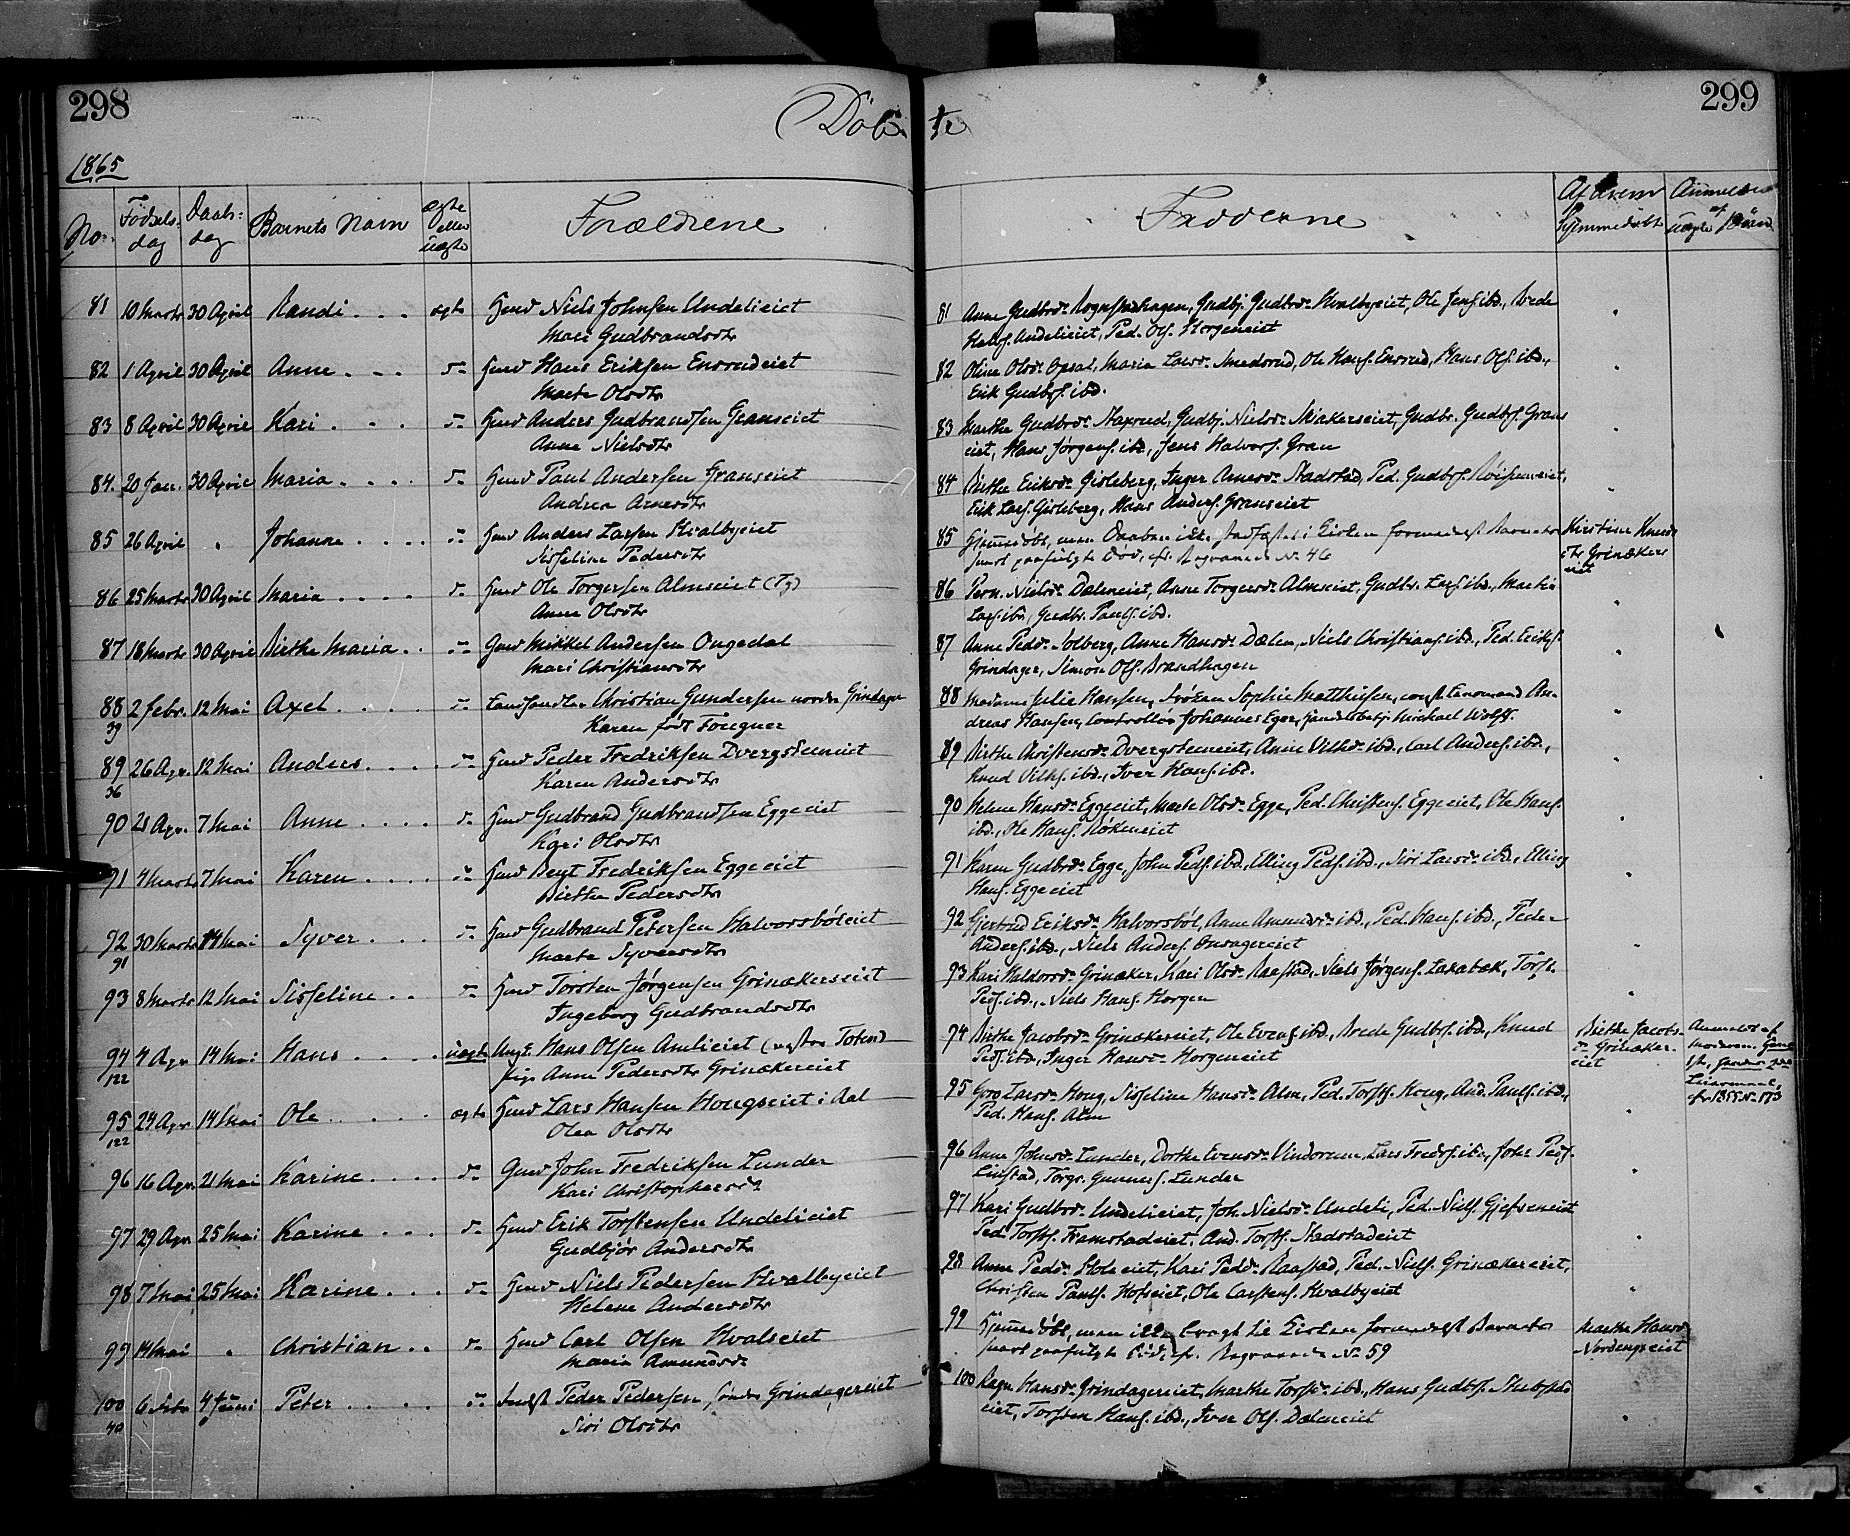 298
299
Döbte
1865
No.
Födsels-
dag
Daabs-
dag
Barnets Navn
ægte
eller
uægte
Forældrene
Fadderne
Af hvem
hjemmedöbt
Anmeldes
af
uægte Börn
81 10 Marts 30 April Randi . . . ægte Husm Niels Johnsen Undelieiet
Mari Gudbrandsdtr
82 1 April 30 April Anne . . . Husm Hans Eriksen Ensrudeiet
Marte Olsdtr
83 8 April 30 April Kari . . . Husm Anders Gudbrandsen Granseiet
Anne Nielsdtr
84. 20 Jan. 30 April Maria . . . . Husm Paul Andersen Granseiet
Andrea Arnesdtr
85 26 April Johanne . . . . Husm Anders Larsen Hvalbyeiet
Sisseline Pedersdtr
86 25 Marts 30 April Maria . . . . Husm Ole Torgersen Almseiet (Tg)
Anne Olsdtr
87 18 Marts 30 April Birthe Maria . . Gaard Mikkel Andersen Ongedal
Mari Christiansdtr
88 2 Febr. 12 Mai Axel . . . . Landhandler Christian Gundersen nordre Grindager
39 Karen födt Fougner
89 26 Apr. 12 Mai Anders . . . . Husm Peder Fredriksen Dvergsteneiet
36 Karen Andersdtr
90 21 Apr. 7 Mai Anne . . . . Husm Gudbrand Gudbrandsen Eggeeiet
Kari Olsdtr
91 4 Marts 7 Mai Karen . . . . Husm Bent Fredriksen Eggeeiet
Birthe Pedersdtr
92 30 Marts 14 Mai Syver . . . Husm Gudbrand Petersen Halvorsböleiet
91 Marte Syversdtr
93 8 Marts 12 Mai Sisseline . . Husm Torsten Jørgensen Grinækerseiet
Ingeborg Gudbrandsdtr
94 4 Apr. 14 Mai Hans . . . . uægte Ungk. Hans Olsen Amlieiet (vestre Toten)
122 Pige Anne Pedersdtr Grinækereiet
95 24 Apr 14 Mai Ole . . . . ægte Husm Lars Hansen Hougseiet i Aal
122 Olea Olsdtr
96 16 Apr. 21 Mai Karine . . . . Gaard John Fredriksen Lunder
Kari Christophersdtr
97 29 Apr 25 Mai Karine . . . . Husm Erik Torstensen Undelieiet
Gudbjör Andersdtr
98 7 Mai 25 Mai Karine . . . . Husm Niels Pedersen Hvalbyeiet
Helene Andersdtr
99 14 Mai Christian . . Husm Carl Olsen Hvalseiet
Maria Amundsdr
100 6 Febr 4 Juni Peter . . . . . Indst Peder Pedersen söndre Grindagereiet
40 Siri Olsdtr
81 Anne Gudbrdr Rognstadhagen, Gudbj. Gudbrdr Hvalbyeiet, Ole Jens. ibd., Brede
Hans. Undelieiet, Ped. Ols. Horgeneiet
82 Oline Olsdr Opsal, Maria Larsdr Smedsrud, Ole Hans. Ensrud, Hans Ols. ibd.,
Erik Gudbs. ibd.
83 Marthe Gudbrdr Naprud, Gudbj. Nielsdr Skiakerseiet, Gudbr. Gudbs. Grans
eiet, Hans Jørgens. ibd, Jens Halvors. Gran
84 Birthe Eriksdr Gisleberg, Inger Arnesdr Nadstad, Ped. Gudbs.
Erik Lars. Gisleberg, Hans Anders. Granseiet
85 Hjemmedöbt, men Daaben ikke stadfæstet i Kirken formedelst Barnets
snart paafulgte Död, cfr. Begravede No 46
Kirstine Knuds
dtr Grinækers
eiet
86 Pern. Nielsdr Dæleneiet, Anne Torgersdr Almseiet, Gudbr. Lars. ibd., Martin
Lars. ibd, Gudbr. Pauls. ibd.
87 Anne Pedsdr Solberg, Anne Hansdr Dælen, Niels Christians. ibd., Ped. Eriks.
Grindager, Simon Ols. Brandhagen
88 Madame Julie Hansen, Fröken Sophie Matthiesen, const Lensmand An-
dreas Hansen, Controllör Johannes Eger, Handelsbetj. Michael Wolff.
89 Birthe Christensdr Dvergsteneiet, Anne Vilhdr ibd., Carl Anders. ibd.,
Knud Vilhs. ibd., Iver Hans. ibd.
90 Helene Hansdr Eggeeiet, Marte Olsdr Egge, Ped. Christens. Eggeeiet, Ole Hans.
ibd., Ole Hans. Rökeneiet
91 Karen Gudbrdr Egge, John Peds. ibd., Elling Peds. ibd., Siri Larsdr ibd., Elling
Hans. Eggeeiet
92 Gjertrud Eriksdr Halvorsböl, Anne Amundsdr ibd., Ped. Hans. ibd., Peder
Anders. ibd., Niels Anders. Onsagereiet
93 Kari Haldorsdr Grinæker, Kari Olsdr Raastad, Niels Jørgens. Laxabæk, Torst.
Peds. ibd., Niels Hans. Horgen
94 Birthe Jacobsdr Grinækereiet, Ole Evens. ibd., Brede Gudbs. ibd., Knud
Peds. ibd., Inger Hansdr Horgeneiet
Birthe Jacobs-
dr Grinæker-
eiet
Anmeldt af
Moderen.
cfr. 1855 No 173
95 Goro Larsdr Houg, Sisseline Hansdr Alm, Ped. Torsts. Houg, And. Pauls. ibd.,
Ped. Hans. Alm
96 Anne Johnsdr Lunder, Dorthe Evensdr Vindorum, Lars Freds. ibd., John Peds.
Linstad, Torgr. Gunners. Lunder
97 Kari Gudbrdr Undelieiet, Joh. Nielsdr Undeli, Ped. Niels. Gjefseneiet
Ped. Torsts. Framstadeiet, And. Torsts. Nadstadeiet
98 Anne Pedsdr Hole eiet, Kari Pedsdr Raastad, Ped. Niels. Grinækereiet,
Christen Pauls. Hofseiet, Ole Carstens. Hvalbyeiet
99 Hjemmedöbt, men ikke bragt til Kirken formedelst Barnets
snart paafulgte Död, cfr. Begravede No 59
Marthe Hansdr
Nordengseiet
100 Ragn. Hansdr Grindagereiet, Marthe Torstdr ibd., Hans Gudbs.
eiet, Torsten Hans. ibd., Iver Ols. Dæleneiet